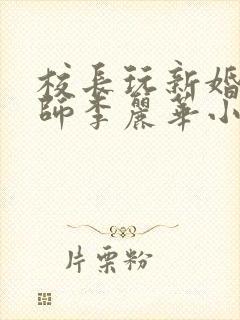 校長玩新婚
師李麗華小
片栗粉